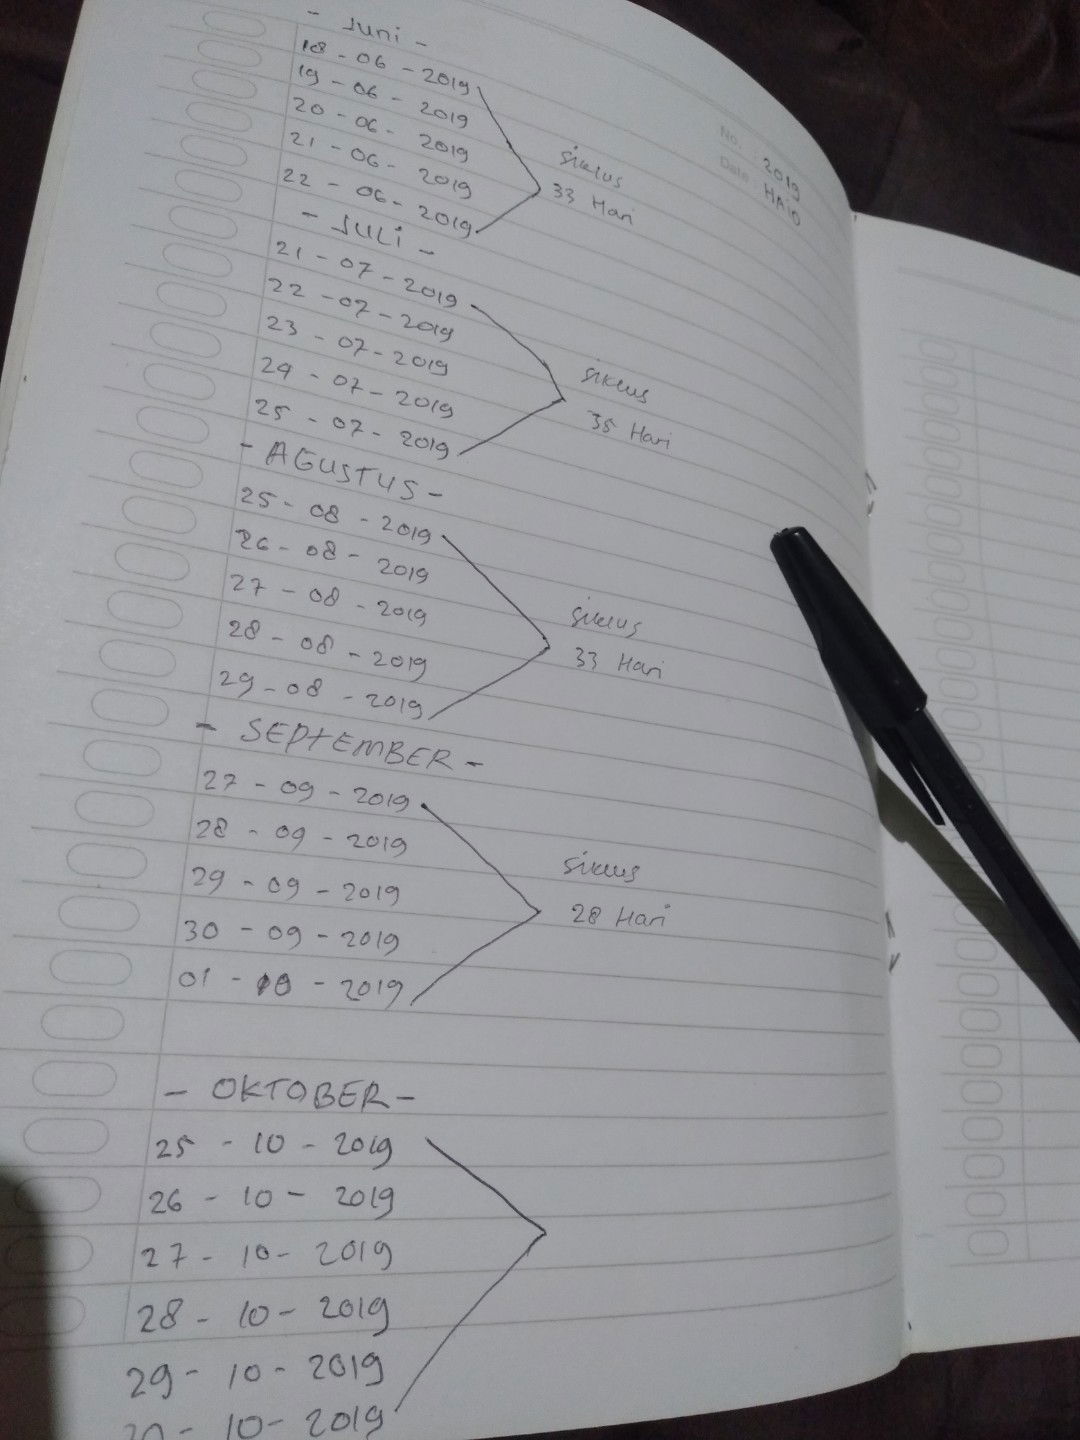 No. : 2019
Date : HAID
- Juni -
18 - 06 - 2019
19 - 06 - 2019
20 - 06 - 2019
21 - 06 - 2019
22 - 06 - 2019
siklus
33 Hari
- JULI -
21 - 07 - 2019
22 - 07 - 2019
23 - 07 - 2019
24 - 07 - 2019
25 - 07 - 2019
siklus
35 Hari
- AGUSTUS -
25 - 08 - 2019
26 - 08 - 2019
27 - 08 - 2019
28 - 08 - 2019
29 - 08 - 2019
siklus
33 Hari
- SEPTEMBER -
27 - 09 - 2019
28 - 09 - 2019
29 - 09 - 2019
30 - 09 - 2019
01 - 10 - 2019
siklus
28 Hari
- OKTOBER -
25 - 10 - 2019
26 - 10 - 2019
27 - 10 - 2019
28 - 10 - 2019
29 - 10 - 2019
30 - 10 - 2019